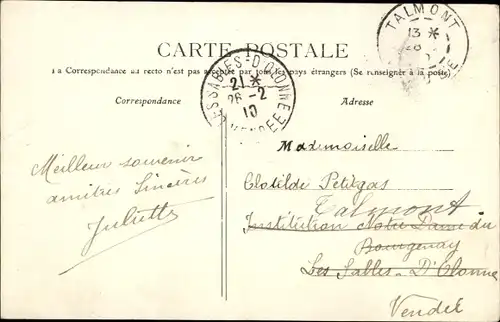 CARTE POSTALE
La Correspondance au recto n'est pas acceptée par tous les pays étrangers (Se renseigner à la poste)
TALMONT
13 *
LES SABLES-D'OLONNE
21 *
26 -2
10
VENDÉE
Correspondance
Adresse
Meilleur souvenir
amitiés sincères
Juliette
Mademoiselle
Clotilde Petitgas
Talmont
Institution Notre Dame du
Bourgenay
Les Sables-D'Olonne
Vendée